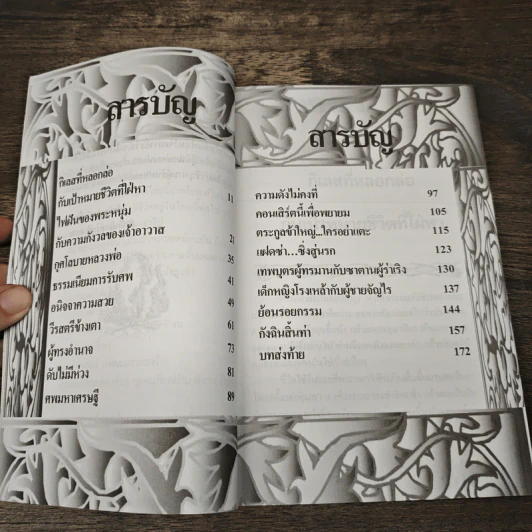 สารบัญ
กิเลสที่หลอกล่อ
กับเป้าหมายชีวิตที่ใฝ่หา 11
ไฟฝันของพระหนุ่ม
กับความกังวลของเจ้าอาวาส 21
กุศโลบายหลวงพ่อ 35
ธรรมเนียมการรับศพ 41
อนิจจาความสวย 49
วีรสตรีข้างเตา 61
ผู้ทรงอำนาจ 73
ดับไม่มีห่วง 81
ศพมหาเศรษฐี 89
สารบัญ
ความดังไม่คงที่ 97
คอนเสิร์ตนี้เพื่อพยายม 105
ตระกูลข้าใหญ่..ใครอย่าแตะ 115
แฝดซ่า...ซิ่งสู่นรก 123
เทพบุตรผู้ทรมานกับซาตานผู้ร่าเริง 130
เด็กหญิงโรงเหล้ากับผู้ชายจัญไร 137
ย้อนรอยกรรม 144
กังฉินสิ้นท่า 157
บทส่งท้าย 172